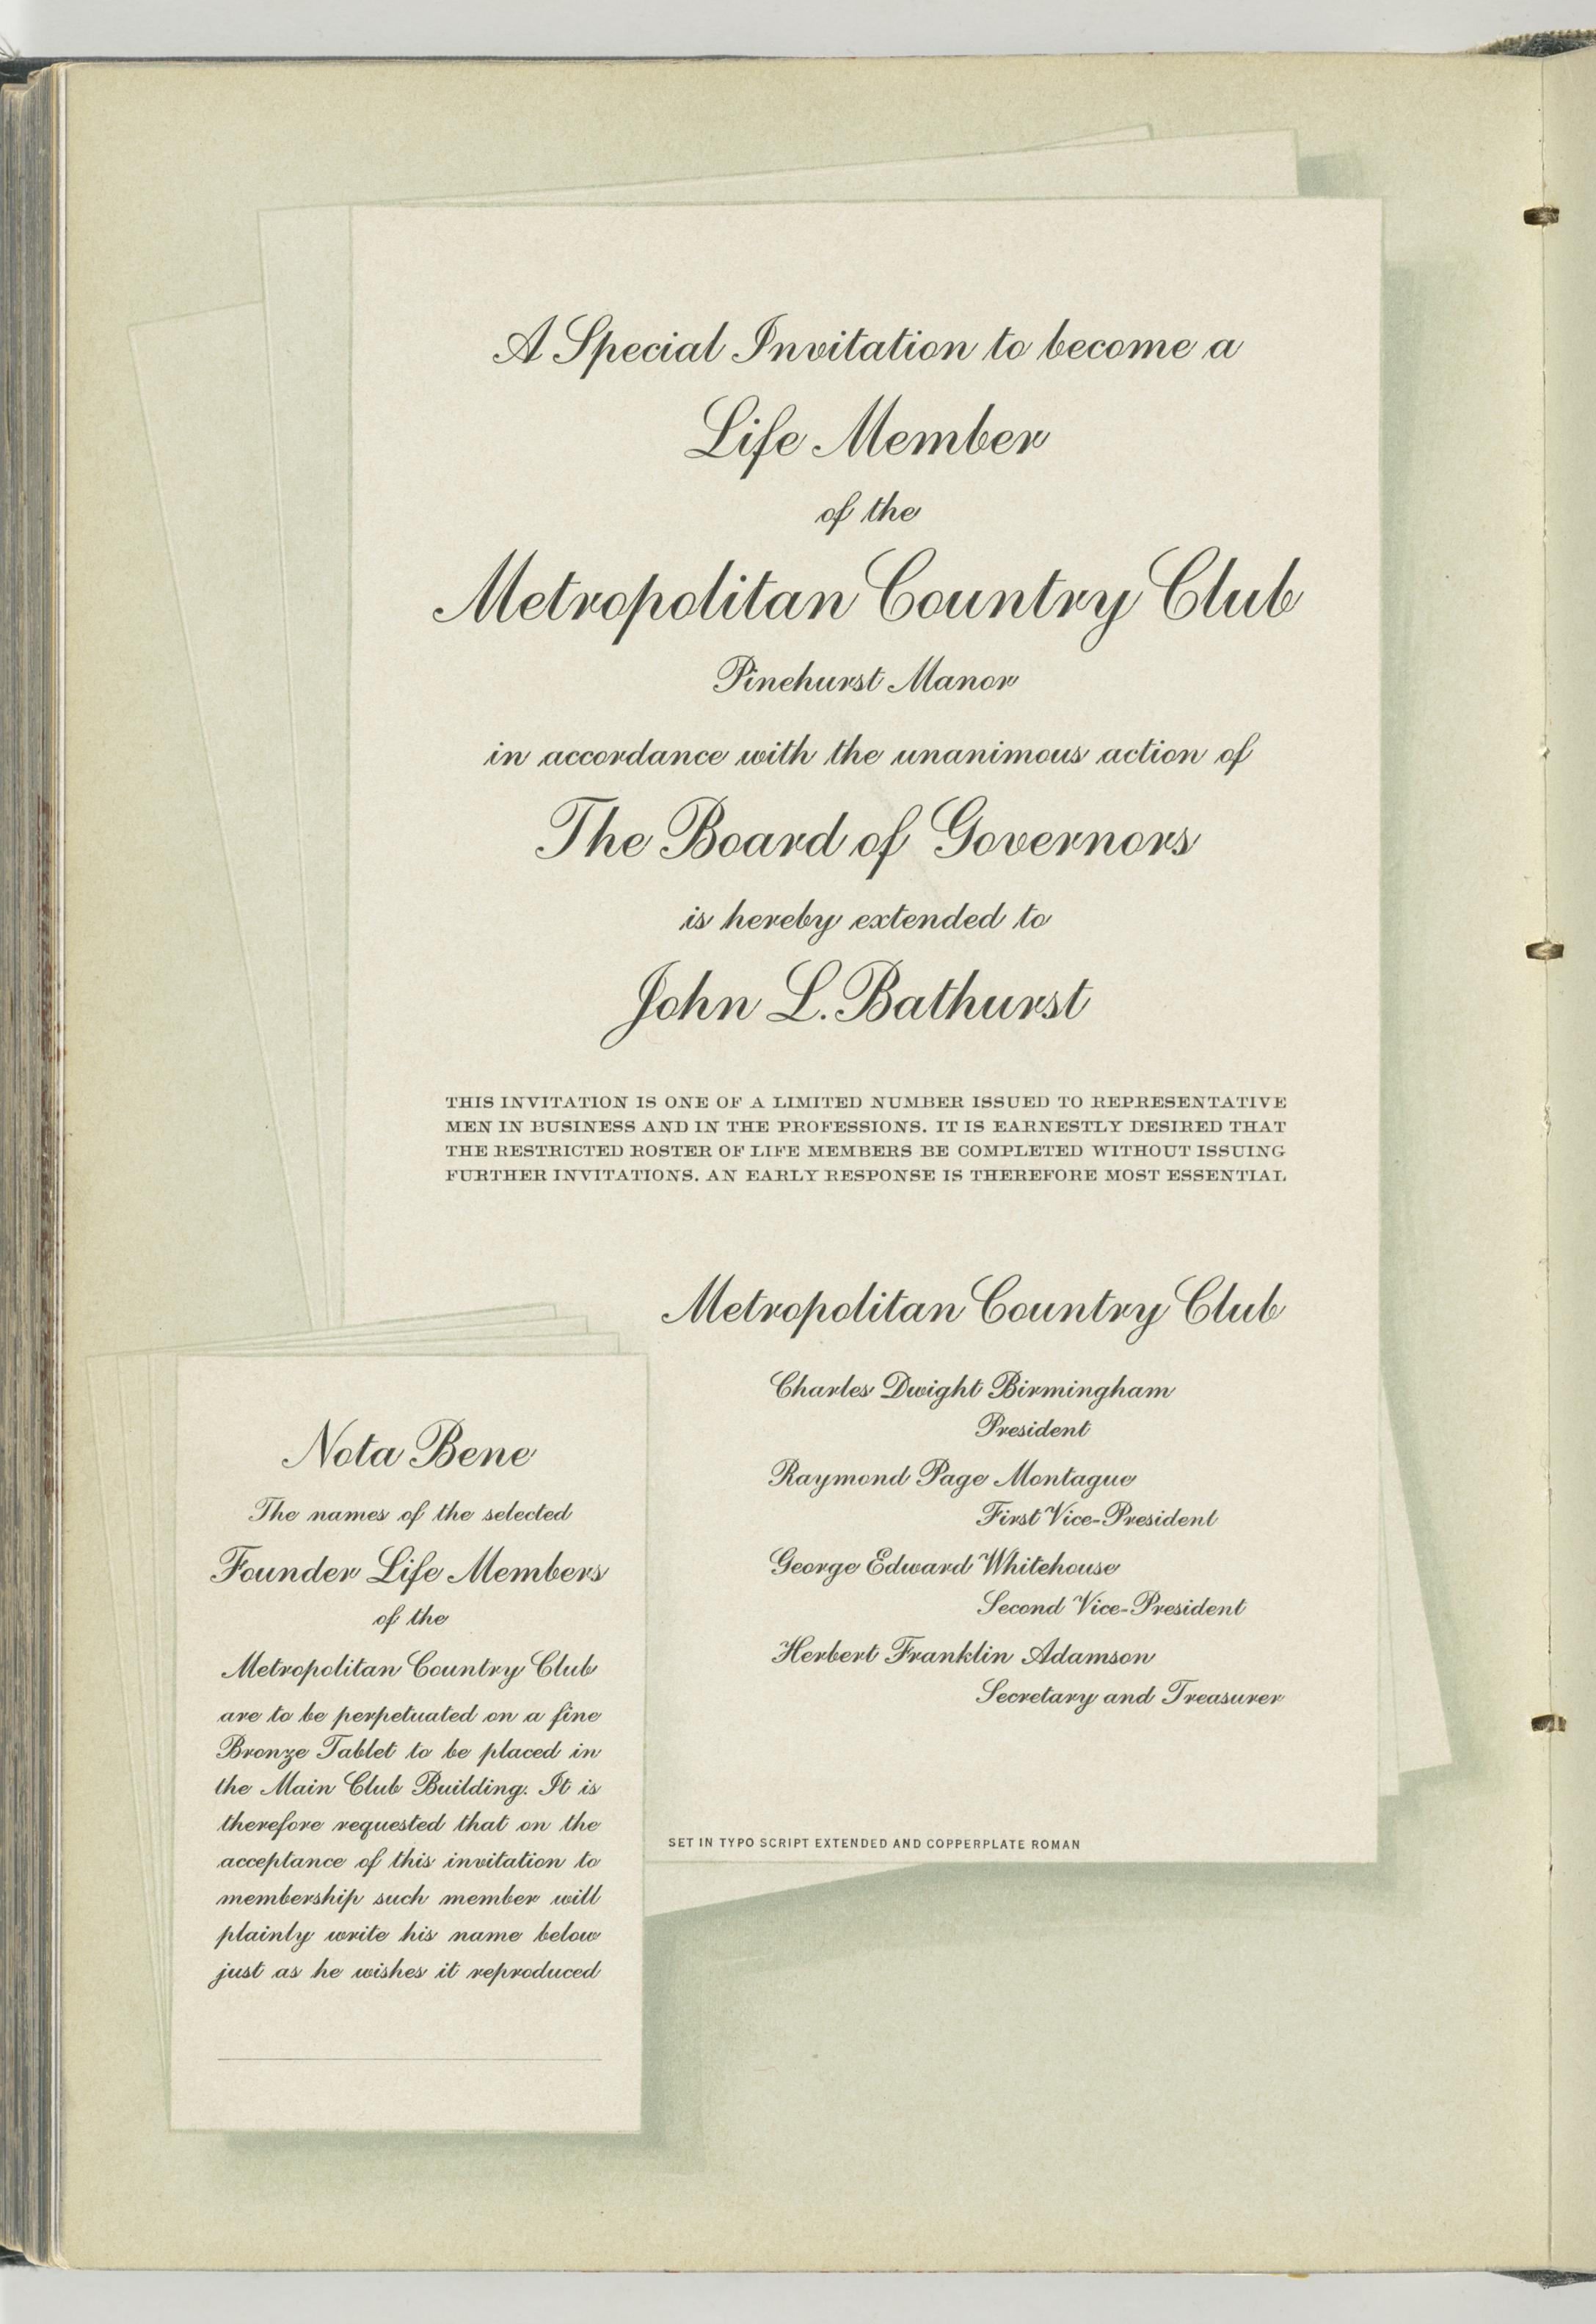 A Special Invitation to become a
Life Member
of the
Metropolitan Country Club
Pinehurst Manor
in accordance with the unanimous action of
The Board of Governors
is hereby extended to
John L. Bathurst
THIS INVITATION IS ONE OF A LIMITED NUMBER ISSUED TO REPRESENTATIVE
MEN IN BUSINESS AND IN THE PROFESSIONS. IT IS EARNESTLY DESIRED THAT
THE RESTRICTED ROSTER OF LIFE MEMBERS BE COMPLETED WITHOUT ISSUING
FURTHER INVITATIONS. AN EARLY RESPONSE IS THEREFORE MOST ESSENTIAL
Metropolitan Country Club
Charles Dwight Birmingham
President
Raymond Page Montague
First Vice-President
George Edward Whitehouse
Second Vice-President
Herbert Franklin Adamson
Secretary and Treasurer
SET IN TYPO SCRIPT EXTENDED AND COPPERPLATE ROMAN
Nota Bene
The names of the selected
Founder Life Members
of the
Metropolitan Country Club
are to be perpetuated on a fine
Bronze Tablet to be placed in
the Main Club Building. It is
therefore requested that on the
acceptance of this invitation to
membership such member will
plainly write his name below
just as he wishes it reproduced